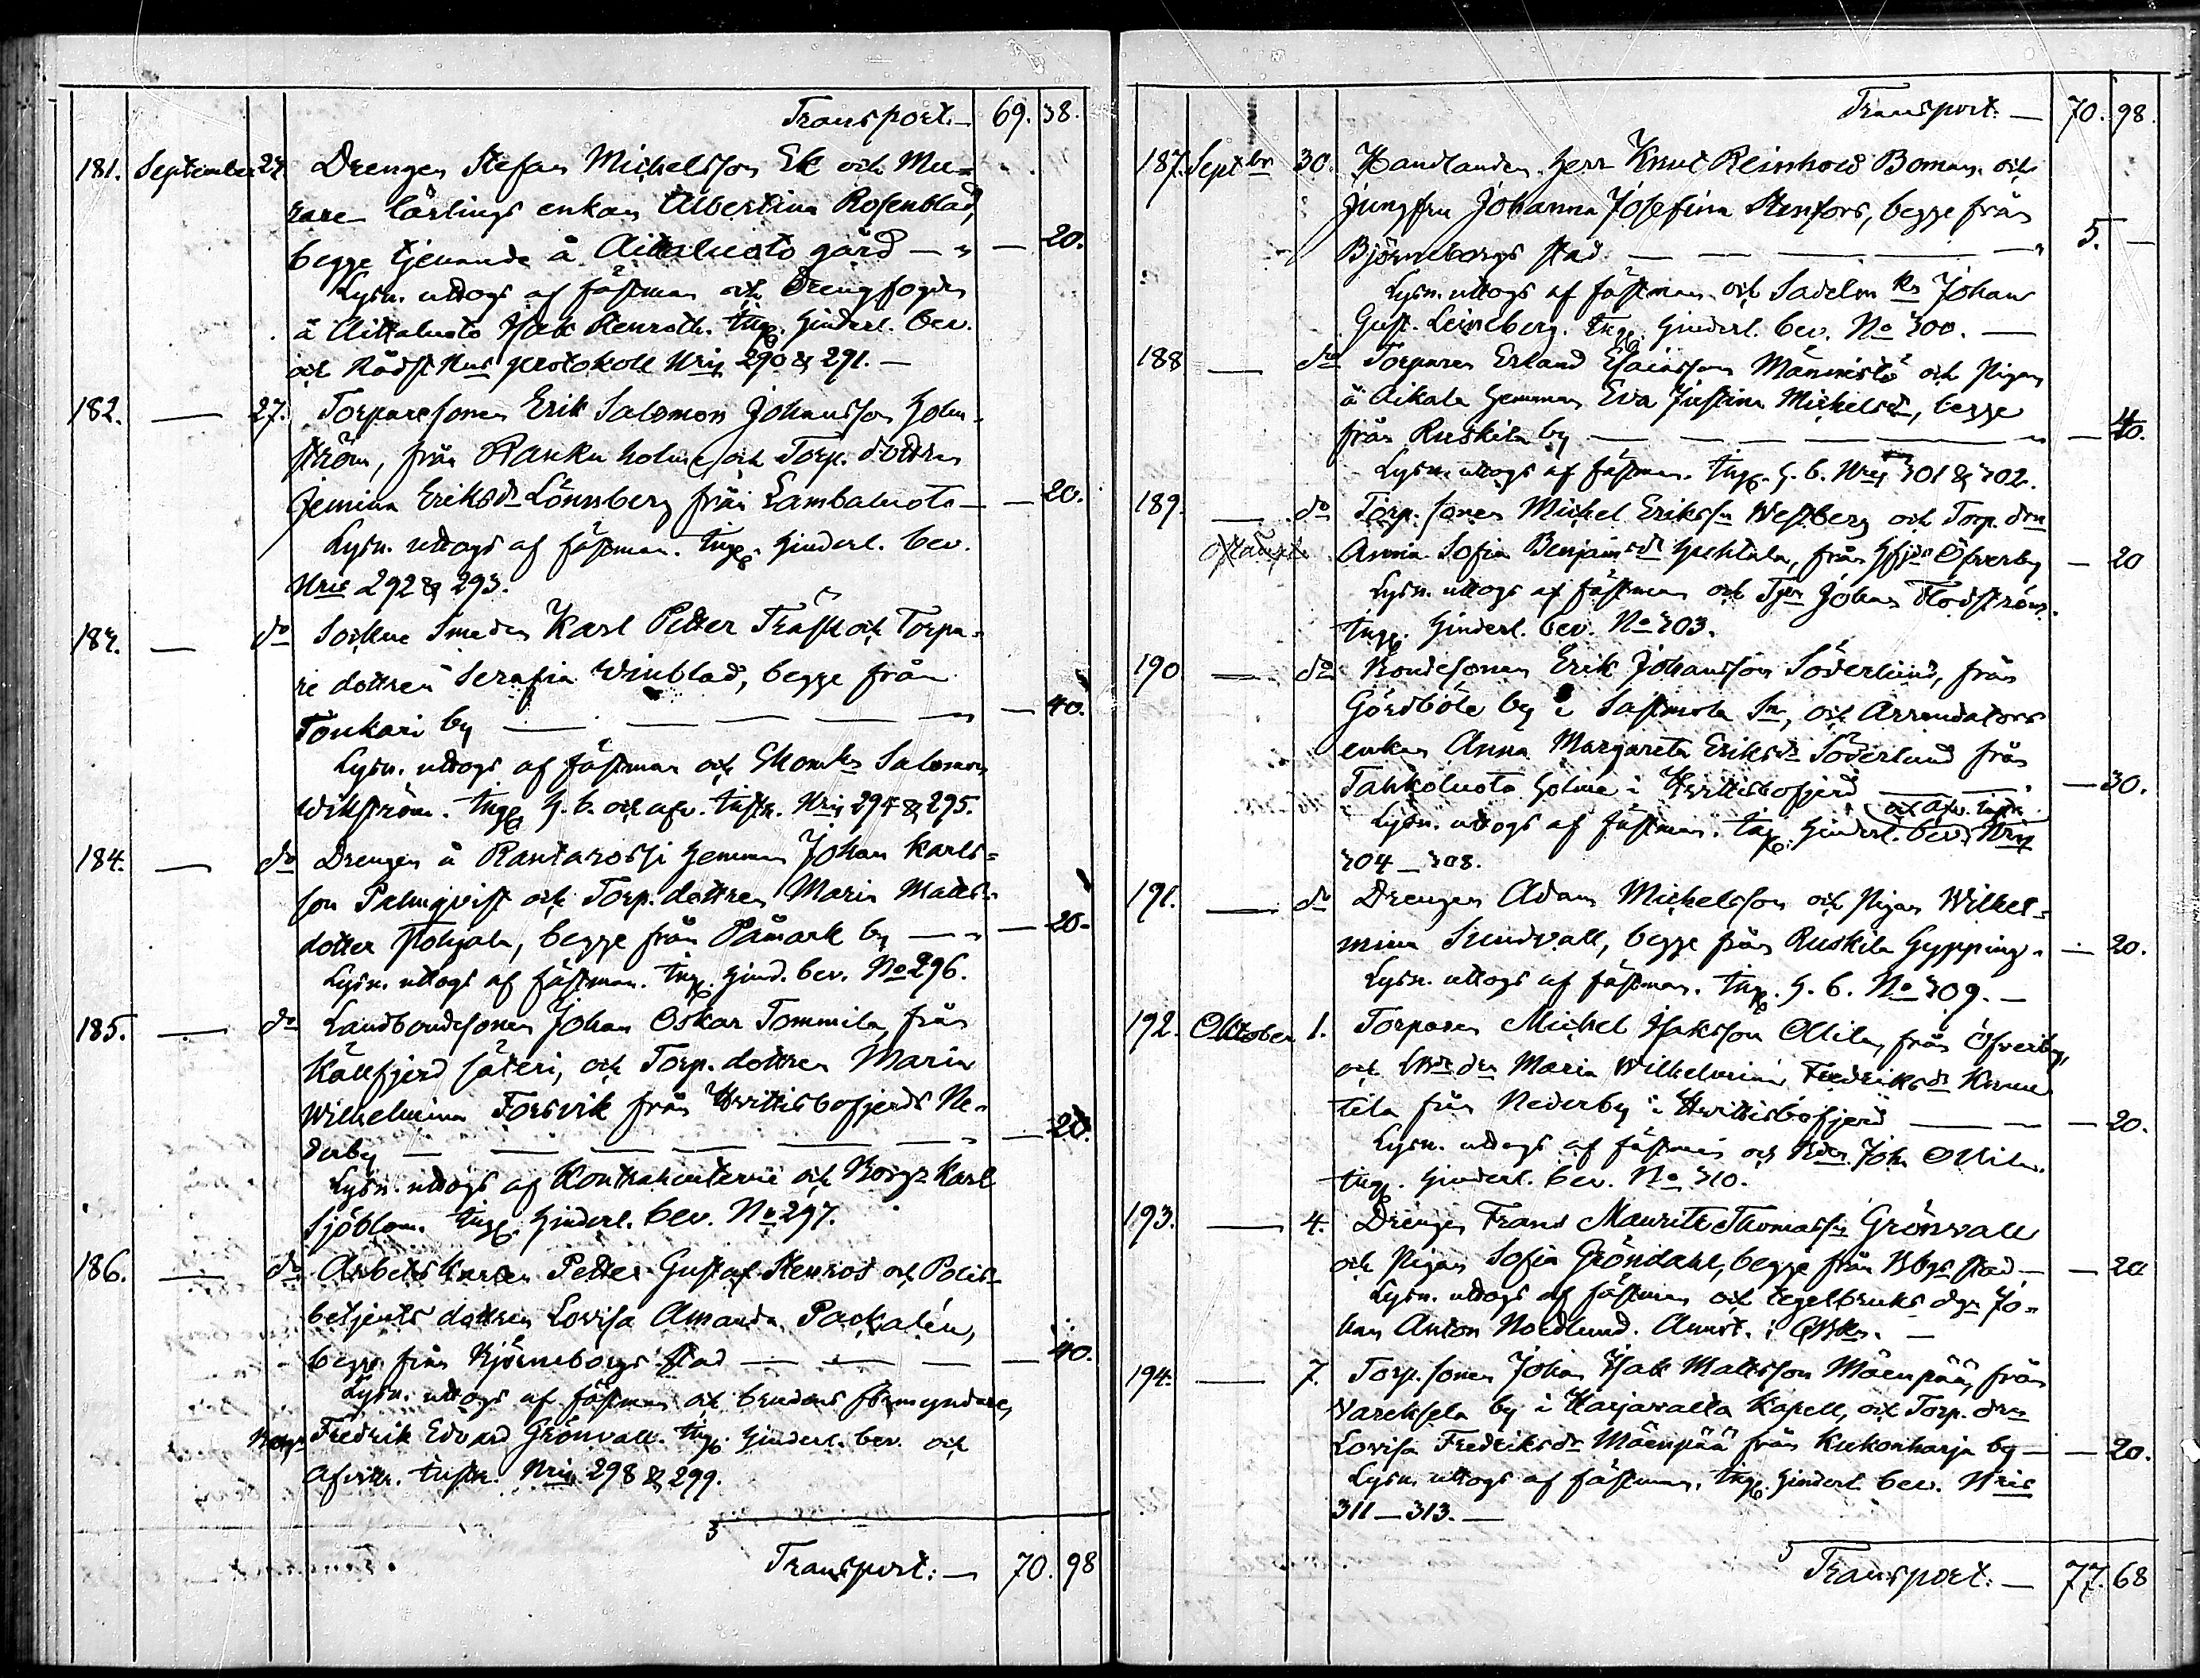 Transport. — 69. 38.
181. September 24. Drengen Stefan Michelsson Ek och Mu=
rare lärlings enkan Albertina Rosenblad,
begge tjenande å Aittaluoto gård — " — 20.
Lysn. uttogs af fästman och Drengfogden
å Aittaluoto Isak Stenroth. Ingg. hinderl. bev.
och Rådst Rus protokoll Nris 290 & 291. —
182. — 27. Torparesonen Erik Salomon Johansson Holm-
ström, från Ranku holme och Torp. dottren
Jemina Eriksdr Lönnberg från Lambaluoto — — 20.
Lysn. uttogs af fästman. Ingg. hinderl. bev.
Nris 292 & 293.
183. — do Sockne Smeden Karl Petter Träsk och Torpa-
re dottren Serafia Winblad, begge från
Tonkari by — — — — — " — 40.
Lysn. uttogs af fästman och Skomkr Salomon
Wikström. Ingg. h. b. och afv. instr. Nris 294 & 295.
184. — do Drengen å Rantarossi hemman Johan Karls=
son Palmqvist och Torp. dottren Maria Matts-
dotter Pohjala, begge från Påmark by — " — 20.
Lysn. uttogs af fästman. Ingg. hind. bev. No 296.
185. — do Landbondesonen Johan Oskar Tommila, från
Källfjerd säteri, och Torp. dottren Maria
Wilhelmina Forsvik från Hvittisbofjerds Ne-
derby — — — — — — " — 20.
Lysn. uttogs af Kontrahenterne och Borgr Karl
Sjöblom. Ingg. hinderl. bev. No 297.
186. — do Arbets karlen Petter Gustaf Stenros och Polis-
betjents dottren Lovisa Amanda Packalén,
begge från Björneborgs stad — — — — 40.
Lysn. uttogs af fästman och brudens förmyndare,
Borgr Fredrik Edvard Grönvall. Ingg. hinderl. bev. och
Afvittr. instr. Nris 298 & 299.
Transport: — 70. 98
Transport. — 70. 98.
187. Septbr 30. Handlanden Herr Knut Reinhold Boman och
Jungfru Johanna Josefina Stenfors, begge från
Björneborgs stad — — — — — " 5. —
Lysn. uttogs af fästman och Sadelm kr Johan
Gust. Leineberg. Ingg. hinderl. bev. No 300. —
188 — do Torparen Erland Esaiasson Männistö och Pigan
å Aikala hemman Eva Justina Michelsdr, begge
från Ruskila by — — — — — " — 40.
Lysn. uttogs af fästman. Ingg. h. b. Nris 301 & 302.
189. — do Torp. sonen Michel Erikssn Westberg och Torp. drn
Anna Sofia Benjamsdr Huhtala, från Hfjds Öfverby — 20
Lysn. uttogs af fästman och Johan Flodström.
Ingg. hinderl. bev. No 303.
190 — do Bondesonen Erik Johansson Söderlund, från
Gårdböle by i Sastmola Sn, och Arrendators
enkan Anna Margareta Eriksdr Söderlund från
Tahkoluoto holme i Hvittisbofjerd — — . — 30.
och afv. instr.
Lysn. uttogs af fästman. Ingg. hinderl. bev. Nris
304 — 308.
191. — do Drengen Adam Michelsson och Pigan Wilhel=
mina Sundvall, begge från Ruskila Hypping. — 20.
Lysn. uttogs af fästman. Ingg. h. b. No 309. —
192. Oktober 1. Torparen Michel Isaksson Ollila, från Öfverby,
och drn Maria Wilhelmina Fredriksdr
tila från Nederby i Hvittisbofjerd — — — 20.
Lysn. uttogs af fästman och Joh. Ollila.
Ingg. hinderl. bev. No 310.
193. — 4. Drengen Frans Maurits Thomassn Grönvall
och Pigan Sofia Gröndahl, begge från Bbgs stad — — 20
Lysn. uttogs af fästman och tegelbruks dgn Jo-
han Anton Nordlund. Annot. i
194. — 7. Torp. sonen Johan Isak Mattsson Mäenpää, från
by i Harjavalta Kapell, och Torp. drn
Lovisa Fredriksdr Mäenpää från Kukonharja by — — 20.
Lysn. uttogs af fästman. Ingg. hinderl. bev. Nris
311 — 313. —
Transport. — 77. 68